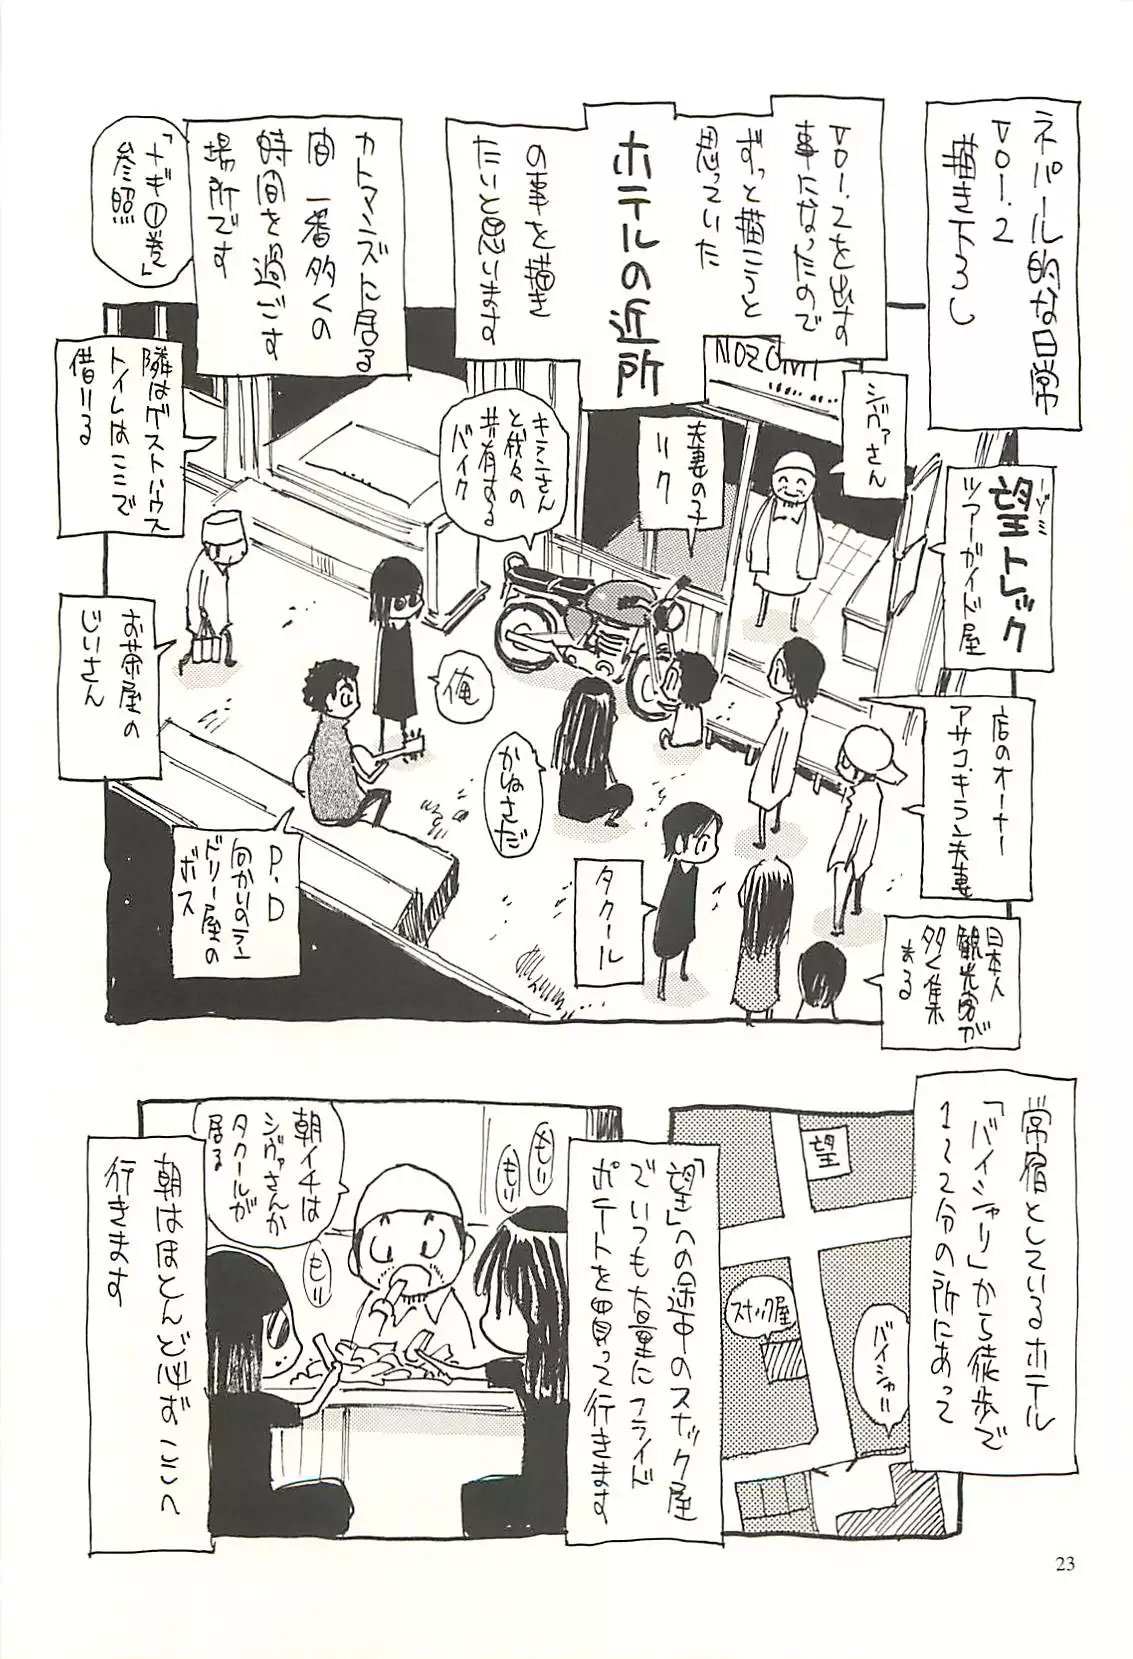 ネパール的な日常
VOl.2
描き下ろし
VOl.2を出す
事になったので
ずっと描こうと
思っていた
ホテルの近所
の事を描き
たいと思います
カトマンズに居る
間 一番多くの
時間を過ごす
場所です
「ナギ①巻」
参照
隣はゲストハウス
トイレはここで
借りる
お茶屋の
じいさん
NOZOMI
シヴァさん
夫妻の子
リク
キランさん
と我々の
共有する
バイク
ノゾミ
望トレック
ツアーガイド屋
店のオーナー
アサコ、キラン夫妻
日本人
観光客が
多く集
まる
俺
かねさだ
タクール
P.D
向かいのラン
ドリー屋の
ボス
常宿としているホテル
「バイシャリ」から徒歩で
1〜2分の所にあって
望
スナック屋
バイシャリ
「望」への途中のスナック屋
でいつも大量にフライド
ポテトを買って行きます
もぃ
もぃ
もぃ
朝イチは
シヴァさんか
タクールが
居る
朝はほとんど必ずここへ
行きます
23